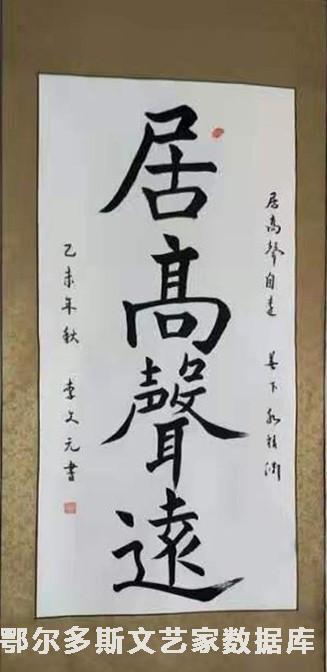 居高聲自遠 善下
居髙聲遠
乙未年秋 李文元書
鄂尔多斯文艺家数据库